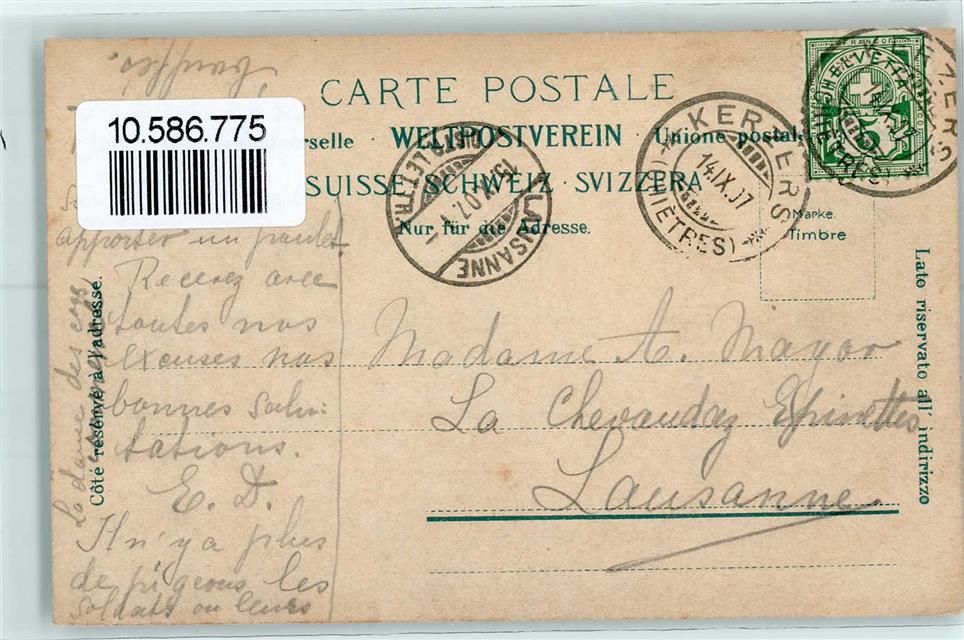 CARTE POSTALE
10.586.775
rselle · WELTPOSTVEREIN · Unione postale
SUISSE SCHWEIZ SVIZZERA
Nur für die Adresse.
HELVETIA
FRANCO
KERZERS
(PIÈTRES)
14.IX.07
KERZERS
14.IX.07
(PIÈTRES)
LAUSANNE
15.IX.07.
Marke.
Timbre
Côté réservé à l'adresse.
Lato riservato all' indirizzo
apporter un
Recevez avec
toutes nos
excuses nos
bonnes salu-
tations.
E. D.
Il n'y a plus
de pigeons les
soldats ou leurs
La dame des
Madame A. Mayor
La Chevaudaz Epinettes
Lausanne.